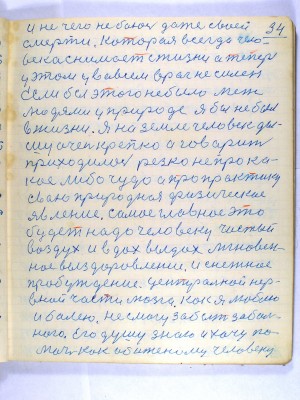 34
и не чего не боюсь даже своей
смерти. Которая всегда чело-
века снимает с жизни а теперь
у этом у вовсем враг не силен
Если бы этого небыло меж
людями у природе я бы не был
в жизни. Я на земле человек ды-
шу очен крепко а говорить
приходился резко не про ка-
кое либо чудо а про практику
свою природная физическое
явление. самое главное это
будет надо человеку чистый
воздух и вдох выдох мгновен-
ное выздоровление. и снежное
пробуждение. центральной нер-
вной части мозга. Как я люблю
и болею. Не смогу забыть забол-
ного. Его душу знаю и хочу по-
мочь. как обиженому человеку